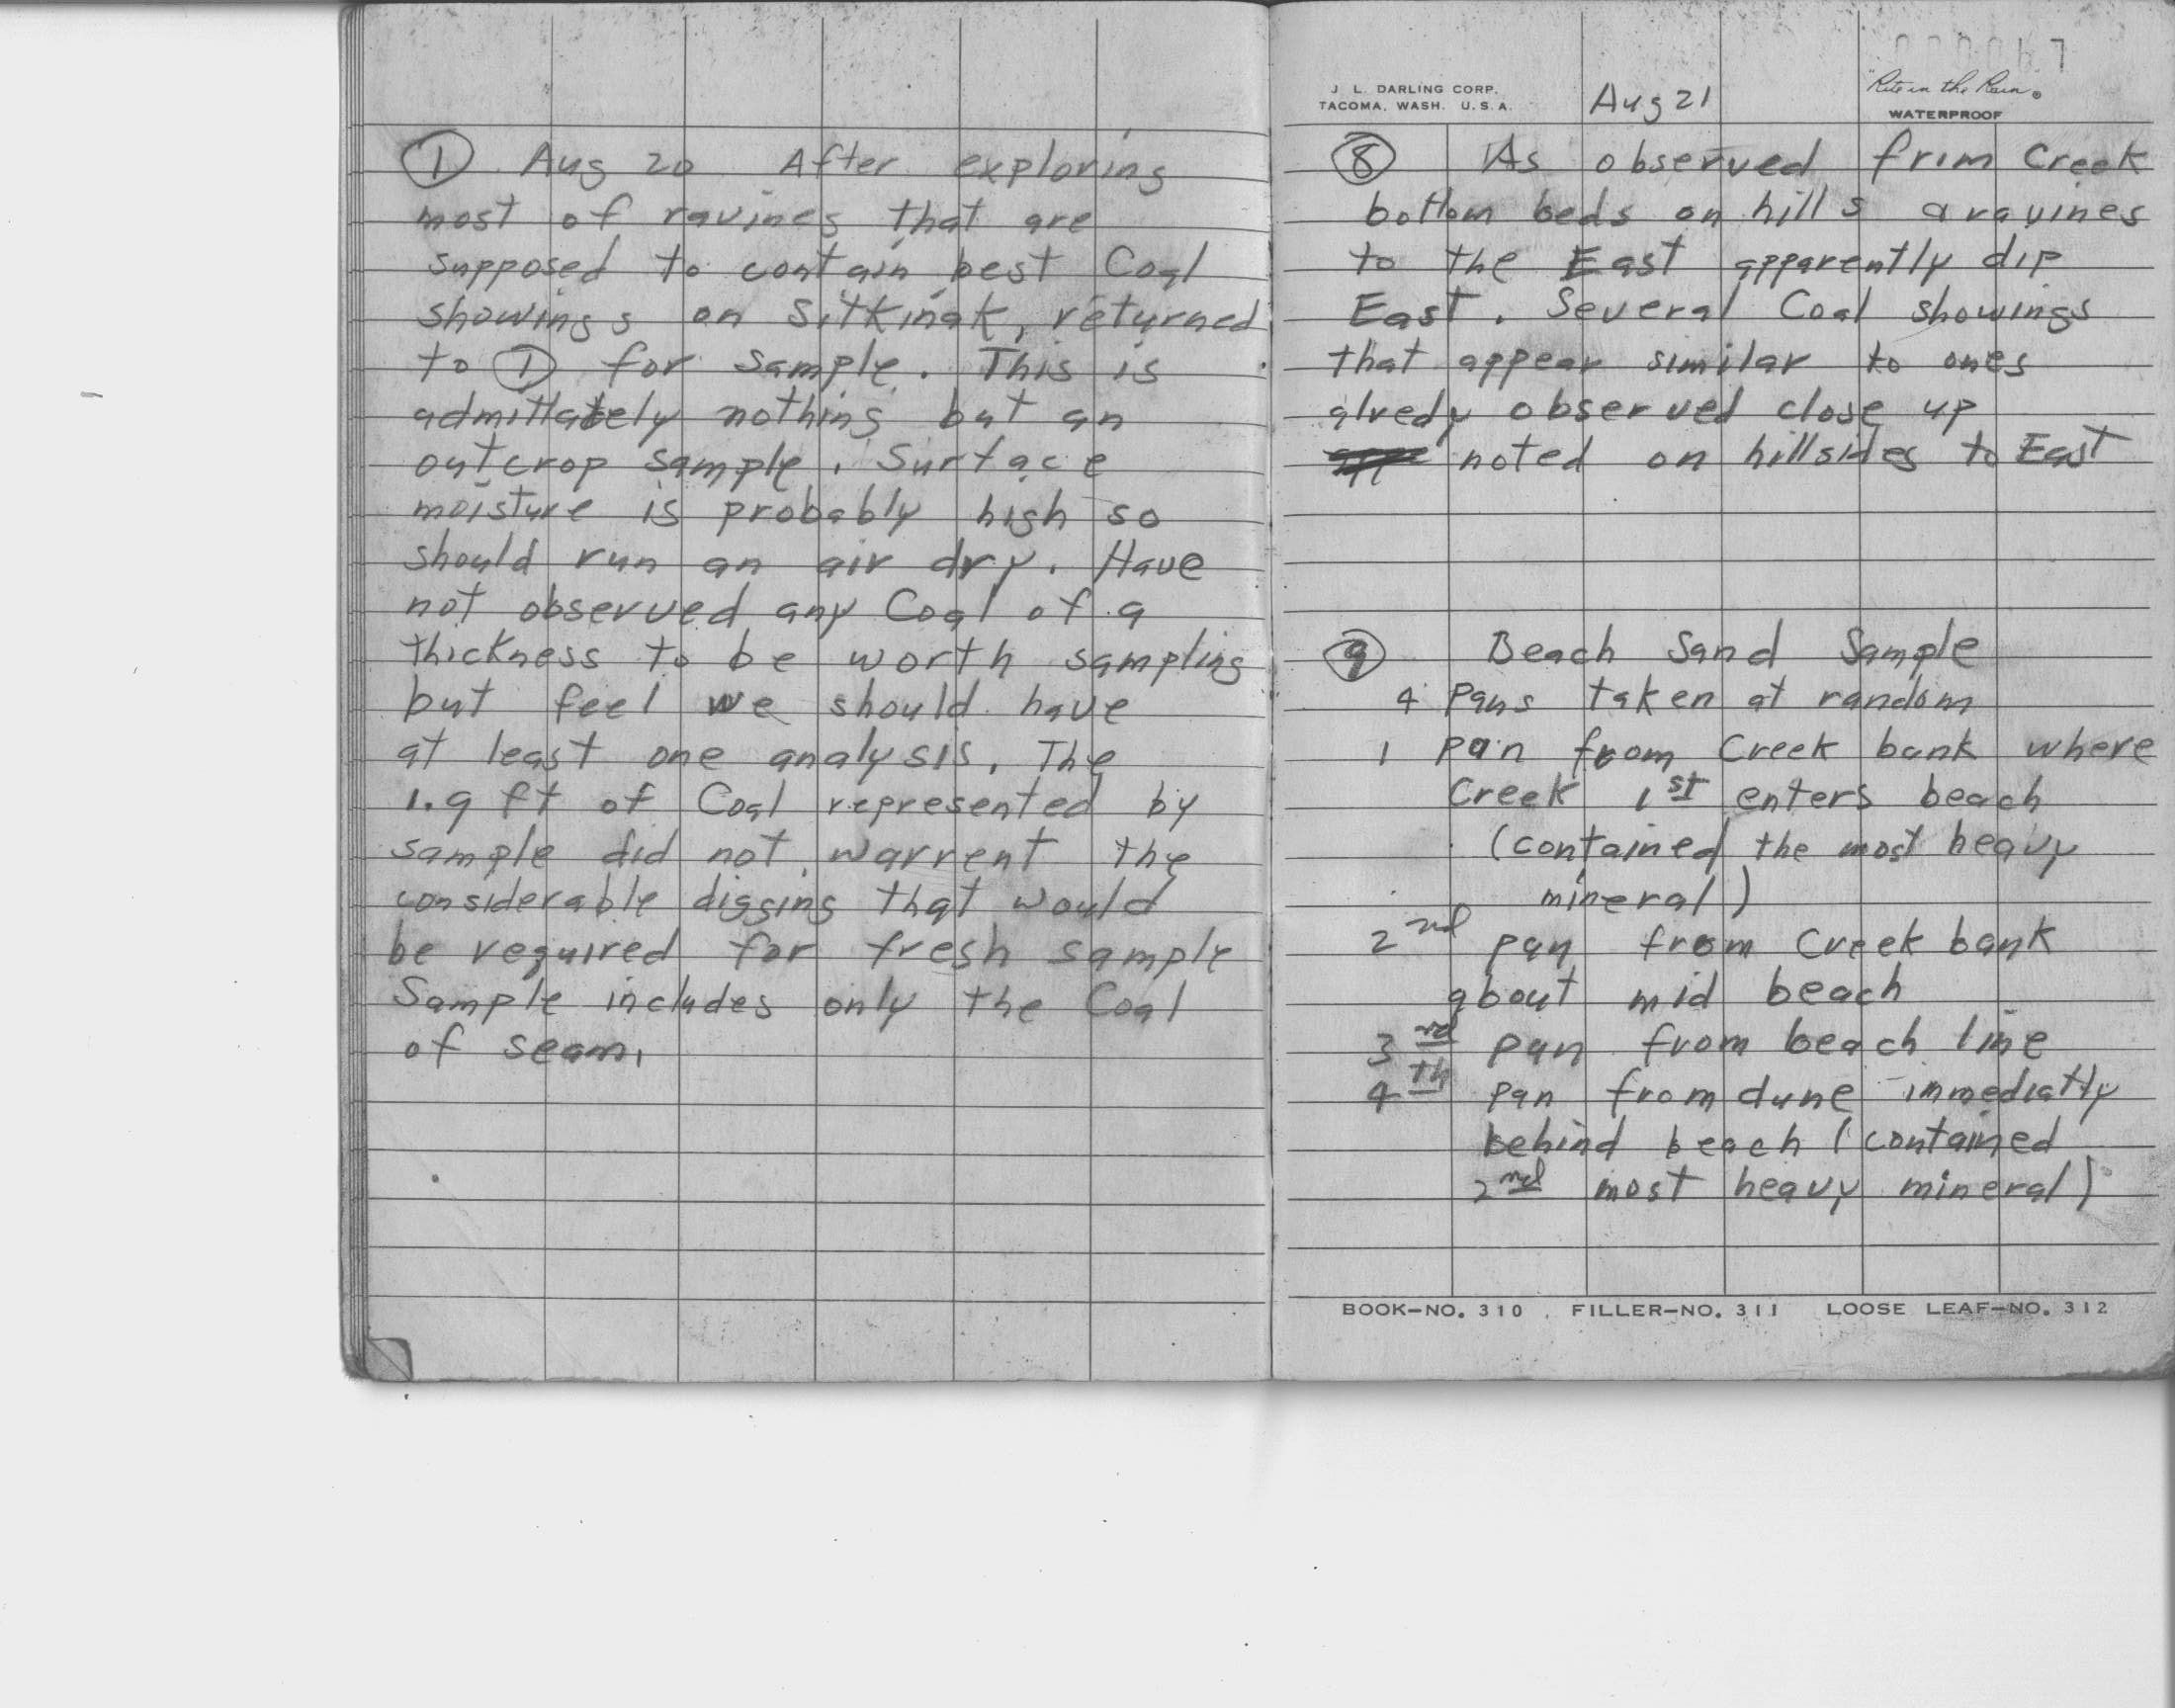 ① Aug 20 After exploring
most of ravines that are
supposed to contain best Coal
showings on Sitkinak, returned
to ① for sample. This is
admittately nothing but an
outcrop sample. Surface
moisture is probably high so
should run an air dry. Have
not observed any Coal of a
thickness to be worth sampling
but feel we should have
at least one analysis. The
1.9 ft of Coal represented by
sample did not warrent the
considerable digging that would
be required for fresh sample
Sample includes only the Coal
of seam.
J. L. DARLING CORP.
TACOMA, WASH. U.S.A.
Aug 21
"Rite in the Rain"
WATERPROOF
⑧ As observed frim Creek
bottom beds on hills a ravines
to the East apparently dip
East. Several Coal showings
that appear similar to ones
alredy observed close up
noted on hillsides to East
⑨ Beach Sand Sample
4 Pans taken at random
1 pan from Creek bank where
Creek 1st enters beach
(contained the most heavy
mineral)
2nd pan from Creek bank
about mid beach
3rd pan from beach line
4th pan from dune immediatly
behind beach (contained
2nd most heavy mineral)
BOOK-NO. 310 FILLER-NO. 311 LOOSE LEAF-NO. 312